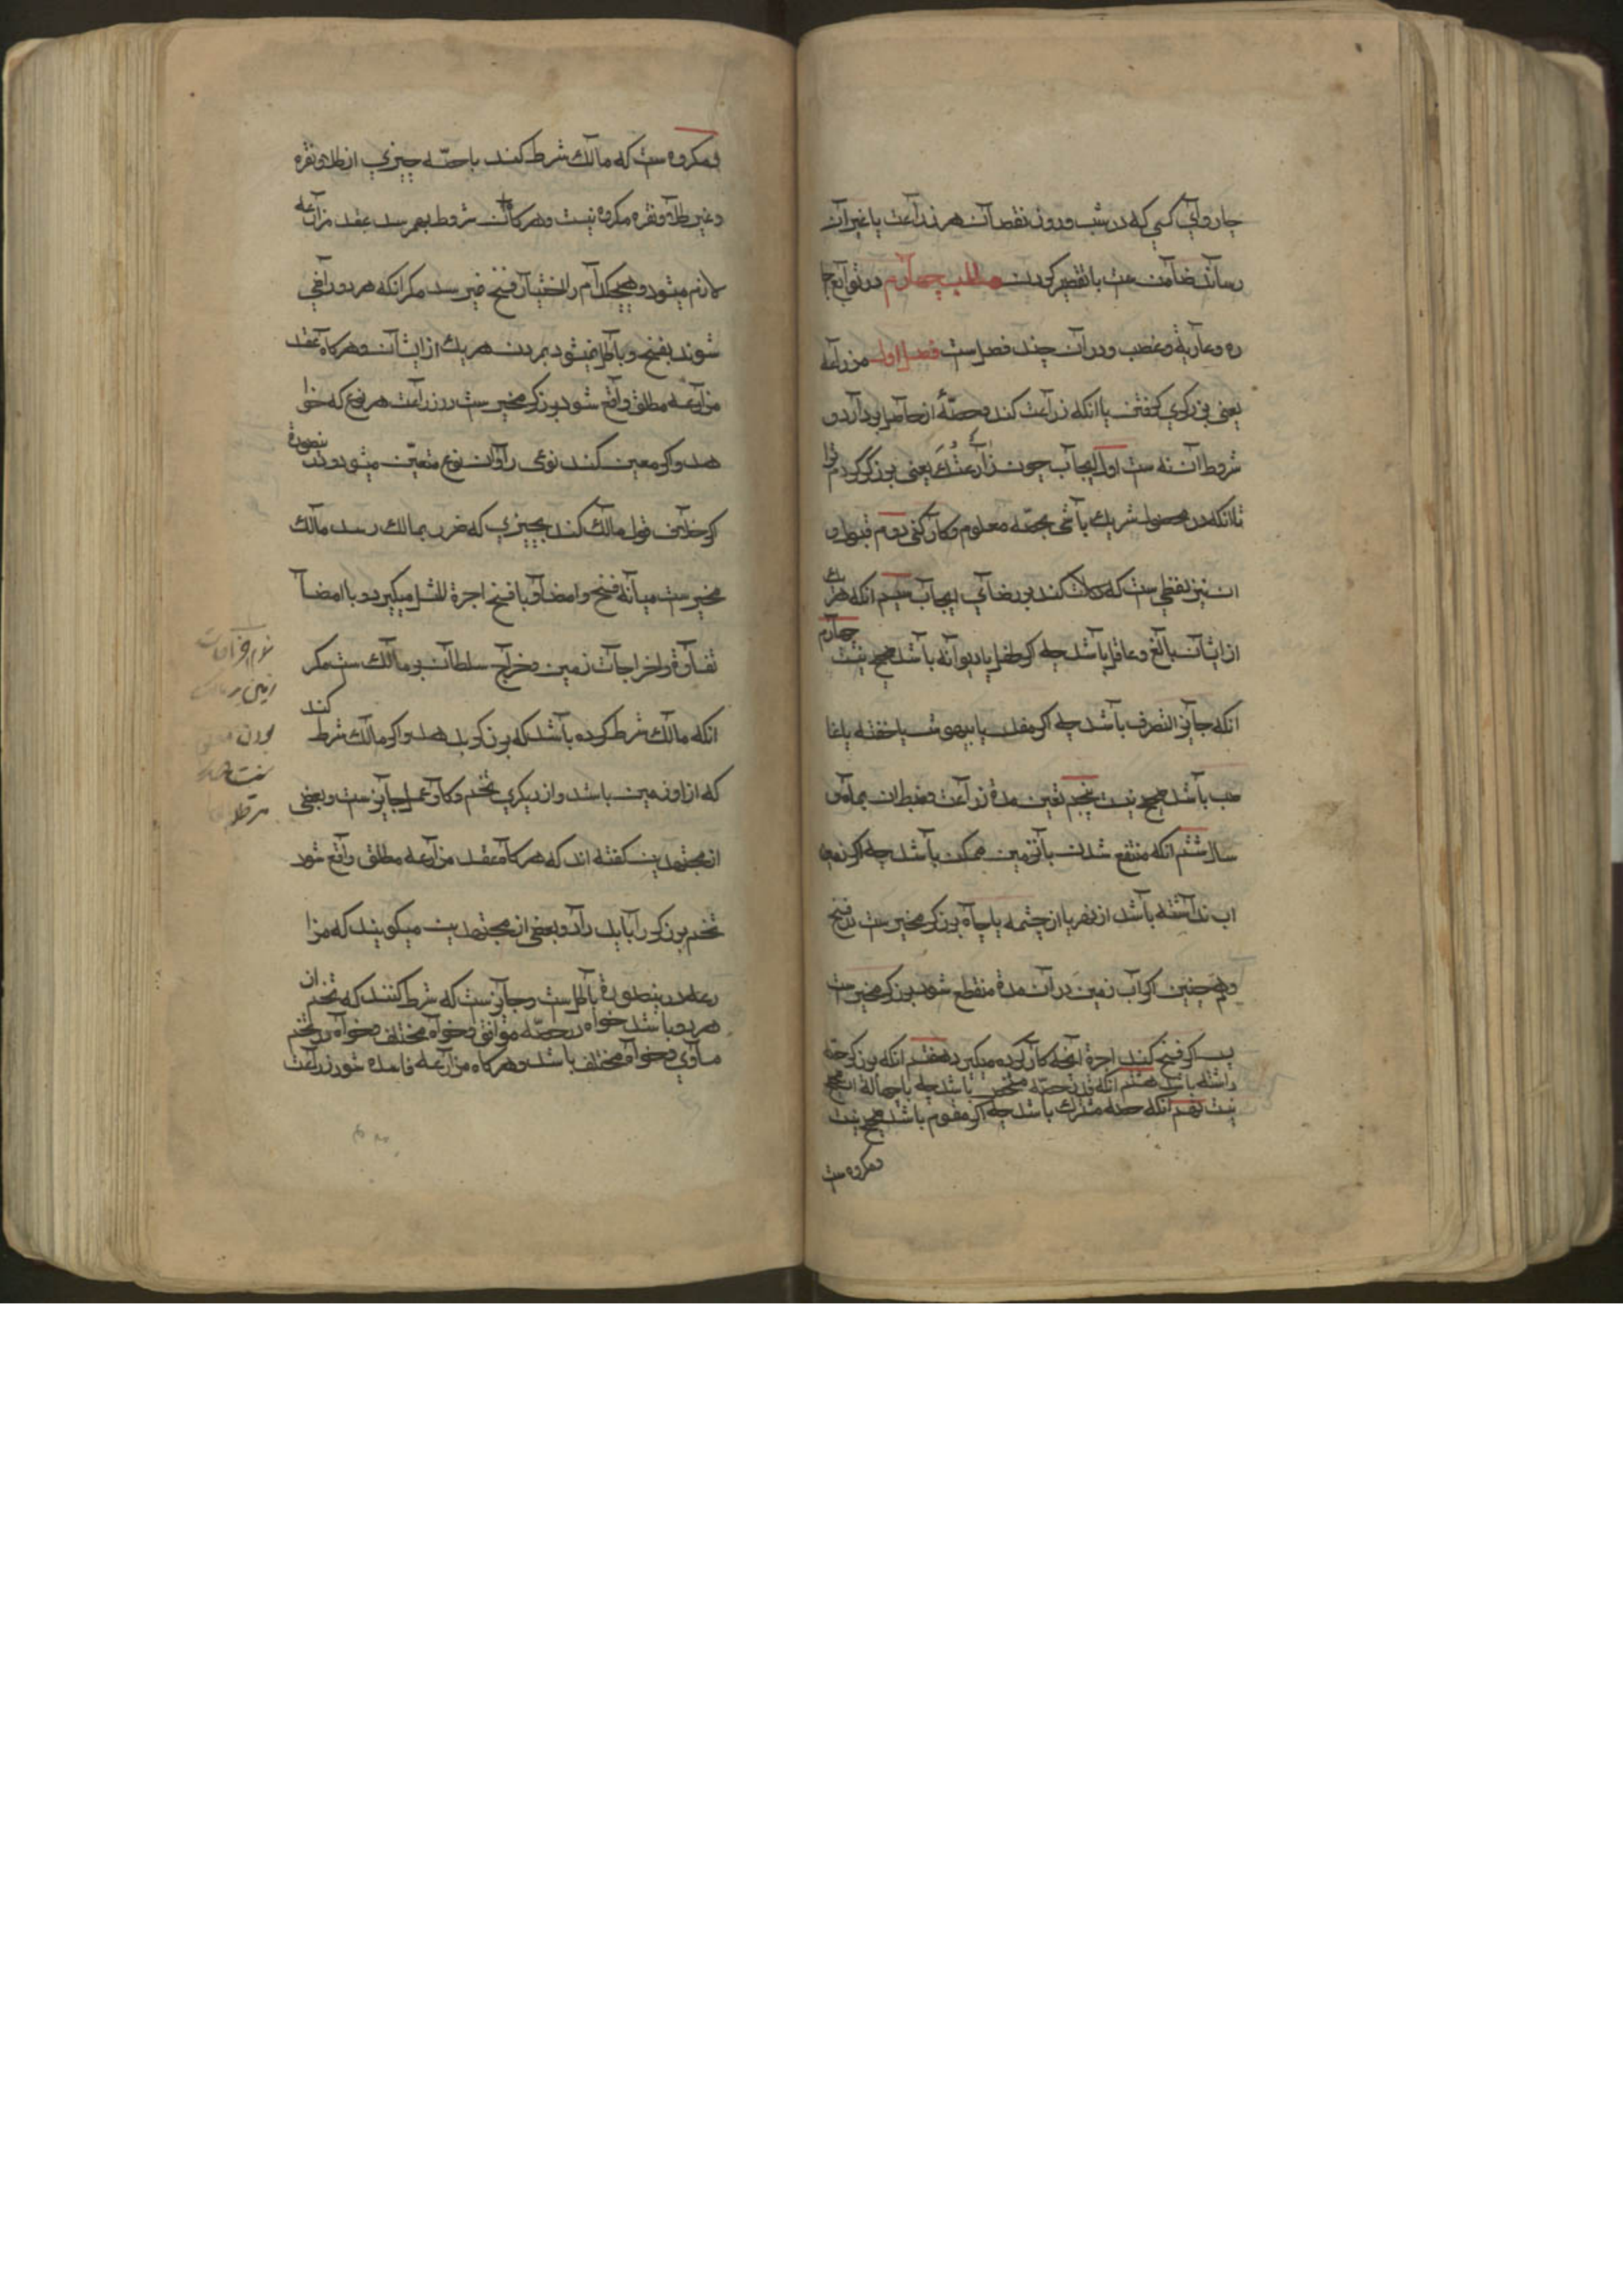 چاروای کسی که در شب و روز نقصان بزراعت یا غیر آن
رساند ضامنست با تقصیر کردن مطلب چهارم در توابع اجا
ره و عاریة و غصب و در آن چند فصلست فصل اول مزارعه
یعنی بزرکری کرفتن یا انکه زراعت کند و حصّهٔ از حاصل بردارد و
شروط آن نه ست اول ایجاب چون زَارَعْتُكَ یعنی بزرکر کردم ترا
تا انکه در محصول شریك باشی بحصّه معلوم و کار کنی دوم قبول و
ان نیز لفظی ست که دلالت کند بر رضای ایجاب سیم انکه هر یك
از ایشان بالغ و عاقل باشد چه اکر طفل یا دیوانه باشد صحیح نیست چهارم
انکه جایز التصرف باشد چه اکر مفلس یا بیهوش یا خفته یا غا
صب باشد صحیح نیست پنجم تعین مدة زراعت و ضبط ان بماه و
سال ششم انکه منتفع شدن بآن زمین ممکن باشد چه اکر زمین
اب نداشته باشد از نهر یا از چشمه یا چاه بزرکر مخیر ست در فسخ
و هم چنین اکر آب زمین در آن مدة منقطع شود بزرکر مخیر است
پس اکر فسخ کند اجرة انچه کار کرده میکیرد هفتم انکه بزرکر حصّه
داشته باشد هشتم انکه قدر حصّه مشخص باشد چه با جهالة ان صحیح
نیست نهم انکه حصه مشترك باشد چه اکر مقسوم باشد صحیح نیست
و مکروه ست
و مکروه ست که مالك شرط کند با حصّه چیزی از طلا و نقره
و غیر طلا و نقره مکروه نیست و هرکاه آن شروط بهم رسد عقد مزارعه
لازم میشود و هیچکدام را اختیار فسخ نمیرسد مکر انکه هر دو راضی
شوند بفسخ و باطل نمیشود بمردن هر یك از ایشان و هرکاه عقد
مزارعه مطلق واقع شود بزرکر مخیر ست در زراعت هر نوع که خوا
هد و اکر معین کند نوعی را آن نوع متعیّن میشود و درینصورة
اکر خلاف قول مالك کند بچیزی که ضرر بمالك رسد مالك
مخیر ست میانه فسخ و امضا و با فسخ اجرة المثل میکیرد و با امضا
تفاوة و اخراجات زمین و خراج سلطان بر مالك ست مکر
انکه مالك شرط کرده باشد که بزرکر بدهد و اکر مالك شرط کند
که از او زمین باشد و از دیکری تخم و کاو و عمل جایز ست و بعضی
از مجتهدین کفته اند که هرکاه عقد مزارعه مطلق واقع شود
تخم بزرکر را باید داد و بعضی از مجتهدین میکویند که مزا
رعه درینصورة باطل است و جایز ست که شرط کنند که تخم از ان
هر دو باشد خواه در حصّه موافق و خواه مختلف و خواه در تخم
مساوی و خواه مختلف باشد و هرکاه مزارعه فاسده شود زراعت